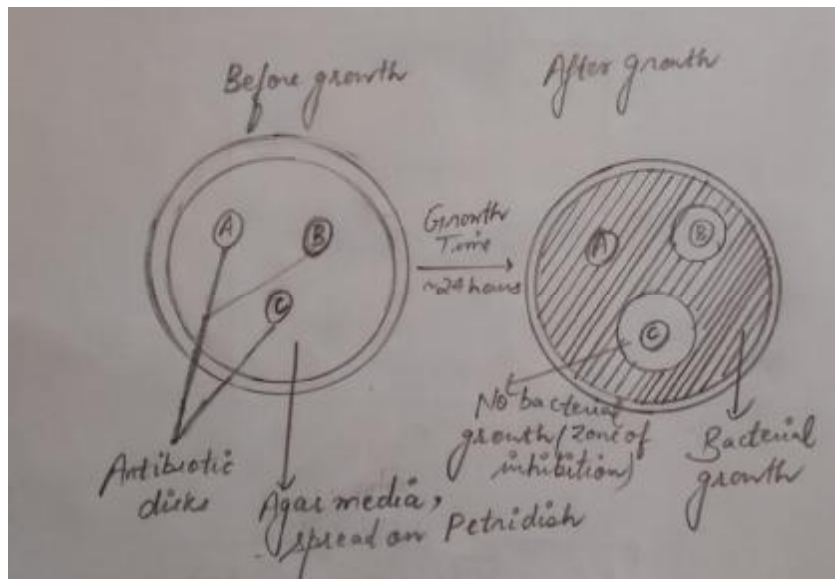 Before growth
After growth
A
B
C
Growth
Time
~24 hours
A
B
C
Antibiotic
disks
Agar media,
spread on Petridish
No bacterial
growth (zone of
inhibition)
Bacterial
growth